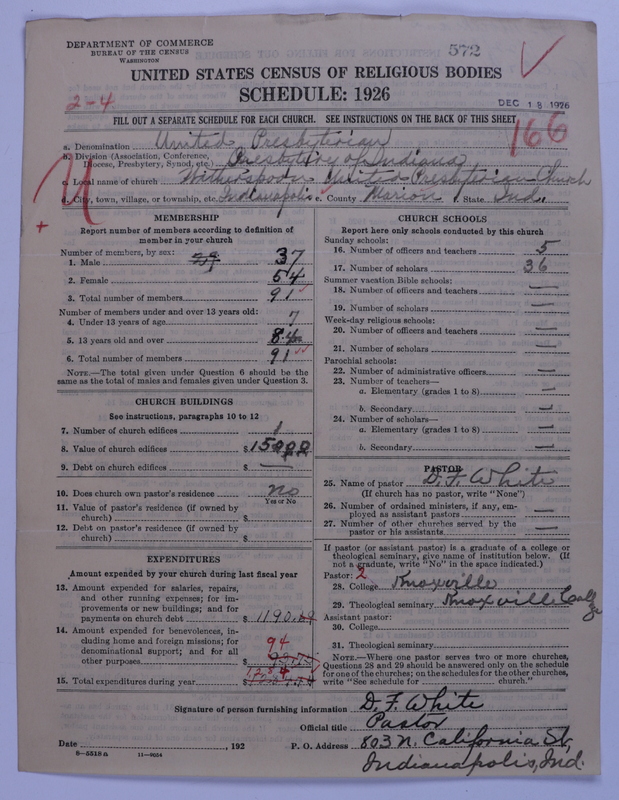 DEPARTMENT OF COMMERCE
BUREAU OF THE CENSUS
WASHINGTON
572
UNITED STATES CENSUS OF RELIGIOUS BODIES
SCHEDULE: 1926
2-4
DEC 18 1926
FILL OUT A SEPARATE SCHEDULE FOR EACH CHURCH. SEE INSTRUCTIONS ON THE BACK OF THIS SHEET
166
a. Denomination United Presbyterian
b. Division (Association, Conference, Diocese, Presbytery, Synod, etc.) Presbytery of Indiana
c. Local name of church Witherspoon United Presbyterian Church
d. City, town, village, or township, etc. Indianapolis e. County Marion f. State Ind.
MEMBERSHIP
Report number of members according to definition of
member in your church
Number of members, by sex:
1. Male 37
2. Female 54
3. Total number of members 91
Number of members under and over 13 years old:
4. Under 13 years of age 7
5. 13 years old and over 84
6. Total number of members 91
NOTE.—The total given under Question 6 should be the
same as the total of males and females given under Question 3.
CHURCH BUILDINGS
See instructions, paragraphs 10 to 12
7. Number of church edifices 1
8. Value of church edifices $15000
9. Debt on church edifices $ —
10. Does church own pastor's residence no
Yes or No
11. Value of pastor's residence (if owned by
church) $
12. Debt on pastor's residence (if owned by
church) $
EXPENDITURES
Amount expended by your church during last fiscal year
13. Amount expended for salaries, repairs,
and other running expenses; for im-
provements or new buildings; and for
payments on church debt $ 1190
14. Amount expended for benevolences, in-
cluding home and foreign missions; for
denominational support; and for all
other purposes $ 94
15. Total expenditures during year $ 1284
CHURCH SCHOOLS
Report here only schools conducted by this church
Sunday schools:
16. Number of officers and teachers 5
17. Number of scholars 36
Summer vacation Bible schools:
18. Number of officers and teachers —
19. Number of scholars —
Week-day religious schools:
20. Number of officers and teachers —
21. Number of scholars —
Parochial schools:
22. Number of administrative officers —
23. Number of teachers—
a. Elementary (grades 1 to 8) —
b. Secondary —
24. Number of scholars—
a. Elementary (grades 1 to 8) —
b. Secondary —
PASTOR
25. Name of pastor D. F. White
(If church has no pastor, write "None")
26. Number of ordained ministers, if any, em-
ployed as assistant pastors —
27. Number of other churches served by the
pastor or his assistants —
If pastor (or assistant pastor) is a graduate of a college or
theological seminary, give name of institution below. (If
not a graduate, write "No" in the space indicated.)
Pastor: 2
28. College Knoxville
29. Theological seminary Knoxville College
Assistant pastor:
30. College
31. Theological seminary
NOTE.—Where one pastor serves two or more churches,
Questions 28 and 29 should be answered only on the schedule
for one of the churches; on the schedules for the other churches,
write "See schedule for church."
Signature of person furnishing information D. F. White
Official title Pastor
Date , 192 P. O. Address 803 N. California St,
Indianapolis, Ind.
8-5518a 11-9054